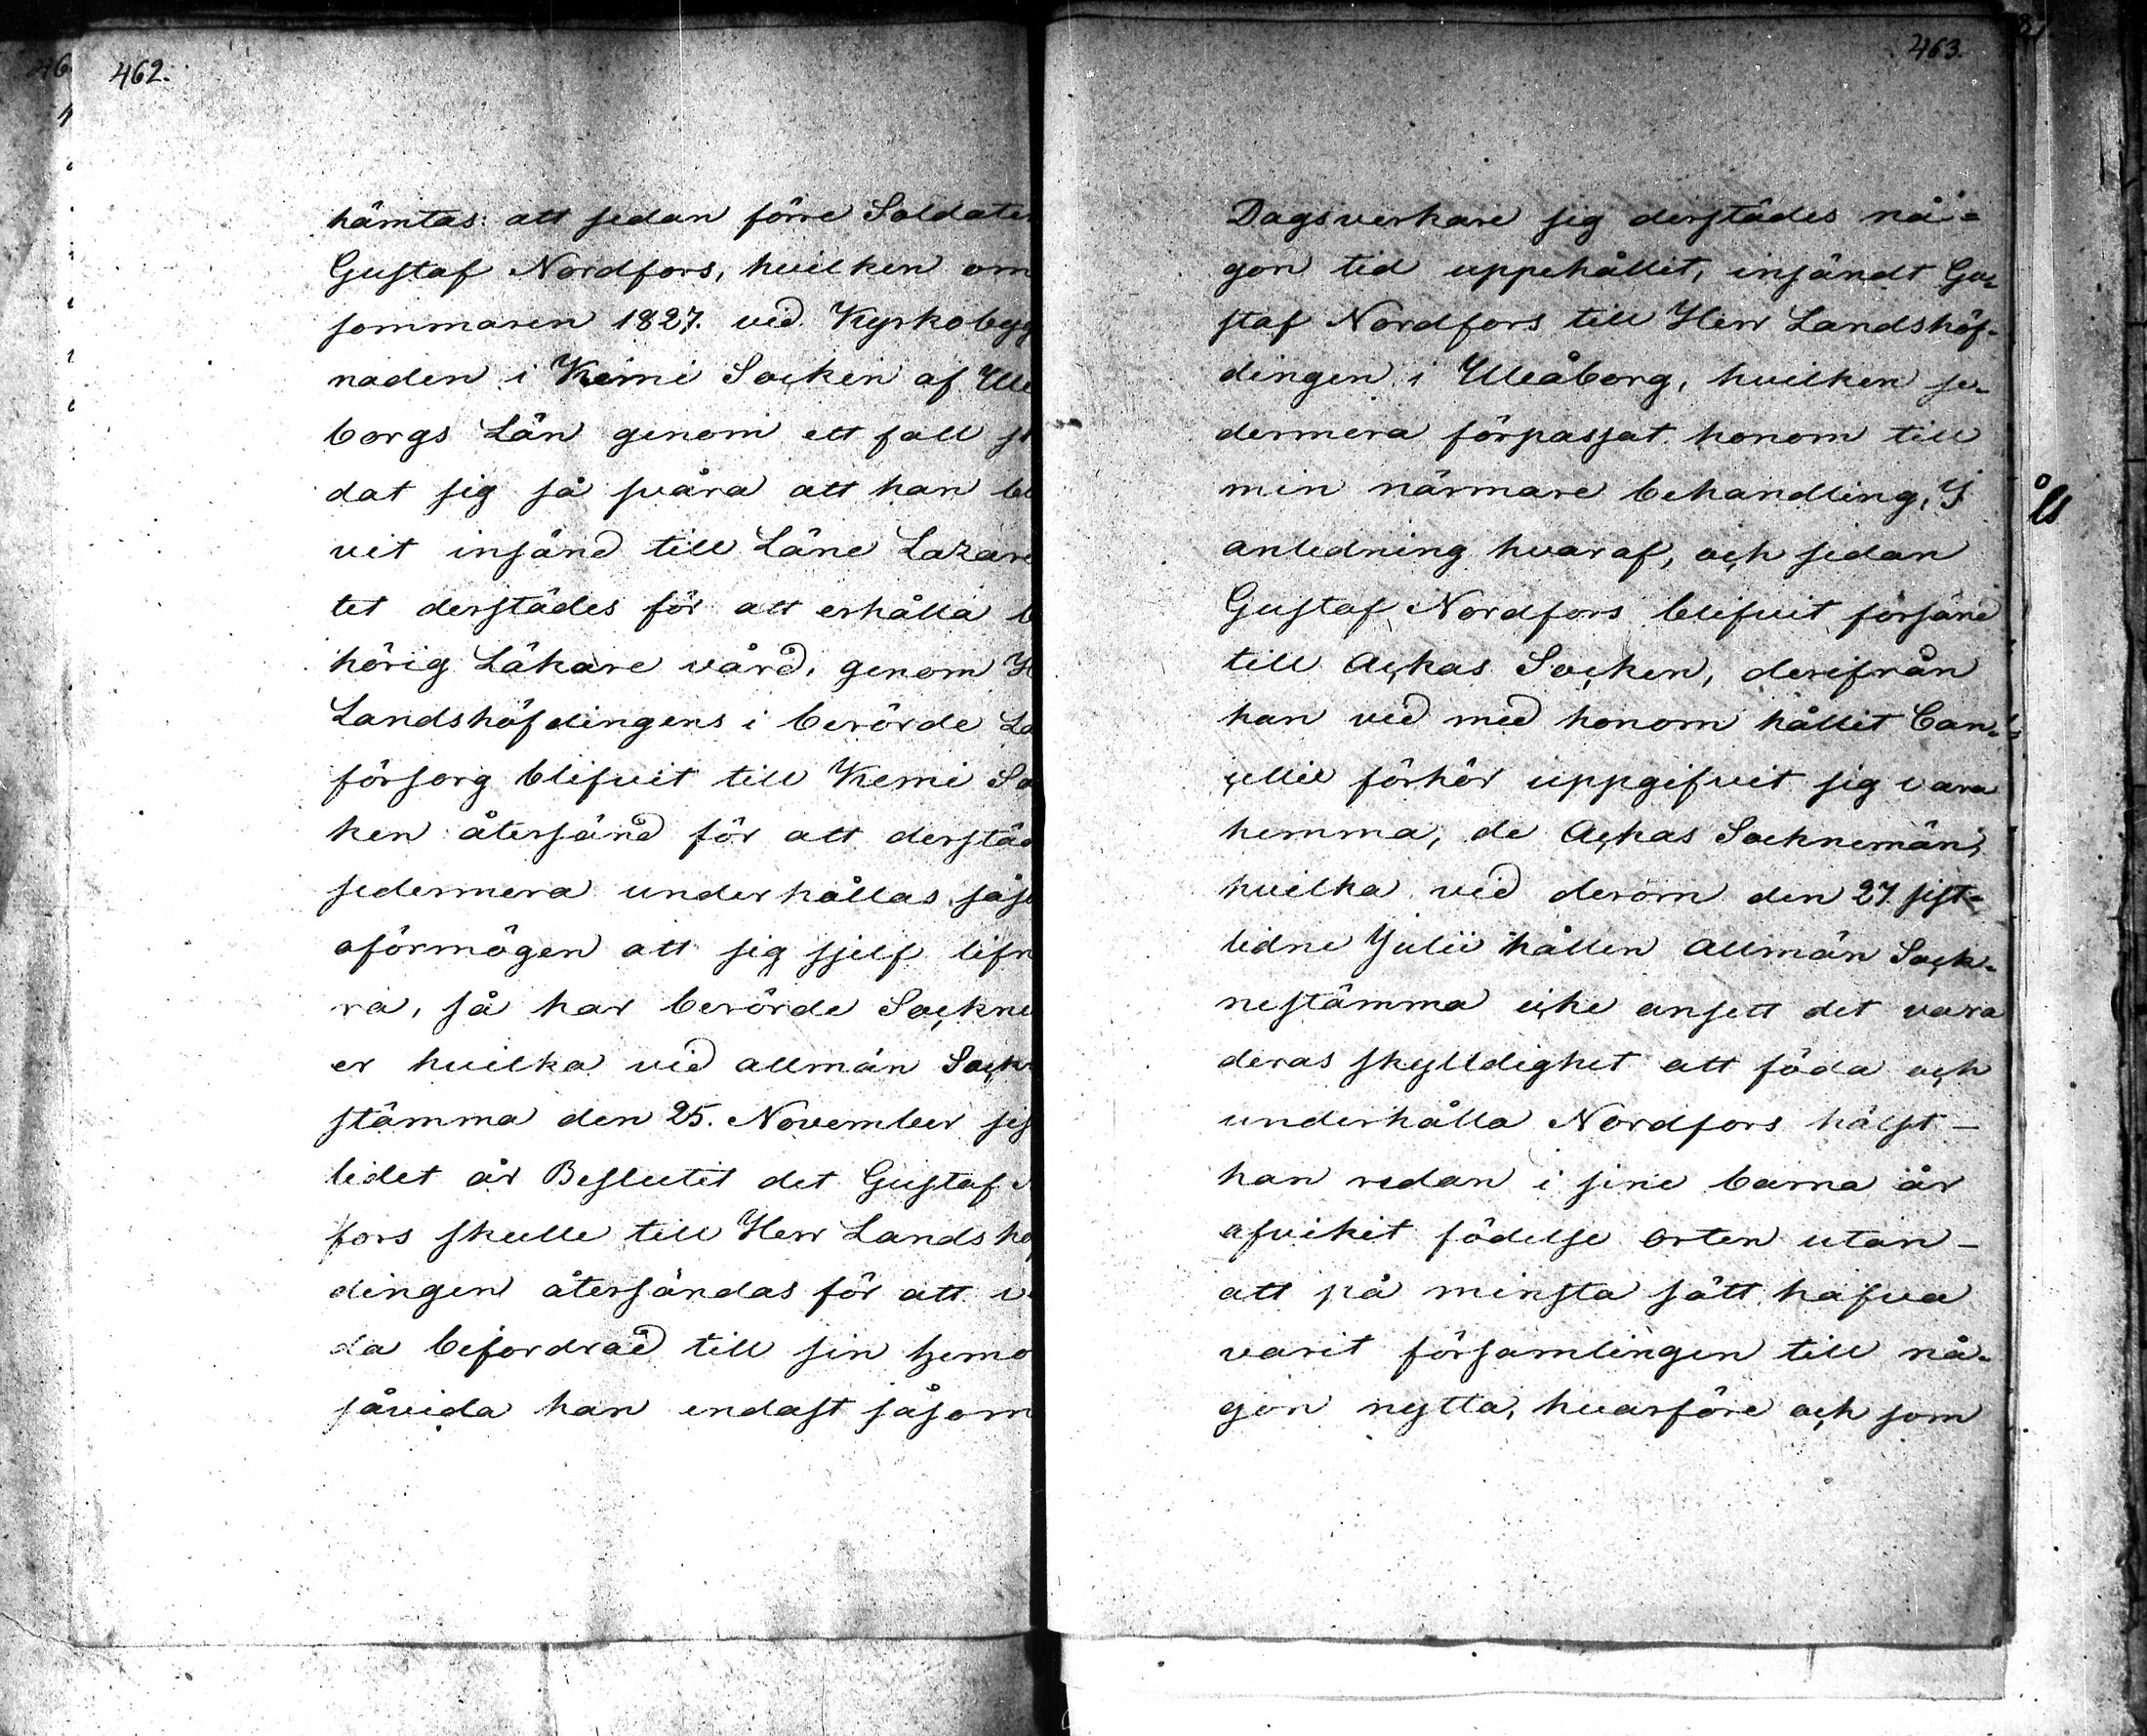 462.
hämtas: att sedan förre Soldaten
Gustaf Nordfors, hvilken om
sommaren 1827. vid Kyrkobygg
naden i Kemi Socken af Ule
borgs Län genom ett fall
dat sig så svåra att han
vit insänd till Läne Lazare
tet derstädes för att erhålla
hörig Läkare vård, genom
Landshöfdingens i berörde
försorg blifvit till Kemi So
ken återsänd för att derstäd
sedermera underhållas såso
oförmögen att sig sjelf lifn
ra, så har berörde Sockne
er hvilka vid allmän Sock
stämma den 25. November sis
lidet år Beslutit det Gustaf
fors skulle till Herr Landshö
dingen återsändas för att
da befordrad till sin hemo
såvida han endast såsom
463.
Dagsverkare sig derstädes nå-
gon tid uppehållit, insändt Gu-
staf Nordfors till Herr Landshöf-
dingen i Uleåborg, hvilken se-
dermera förpassat honom till
min närmare behandling, I
anledning hvaraf, och sedan
Gustaf Nordfors blifvit försänd
till Ackas Socken, derifrån
han vid med honom hållit Can-
cellie förhör uppgifvit sig vara
hemma, de Ackas Socknemän,
hvilka vid derom den 27 sist-
lidne Julii hållen allmän Sock-
nestämma icke ansett det vara
deras skylldighet att föda och
underhålla Nordfors hälst-
han redan i sine barna år
afvikit födelse orten utan-
att på minsta sätt hafva
varit församlingen till nå-
gon nytta, hvarföre och som